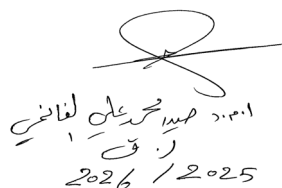 ا.م.د حيدر محمد علي الغانمي
ر. ق
2025 / 2026